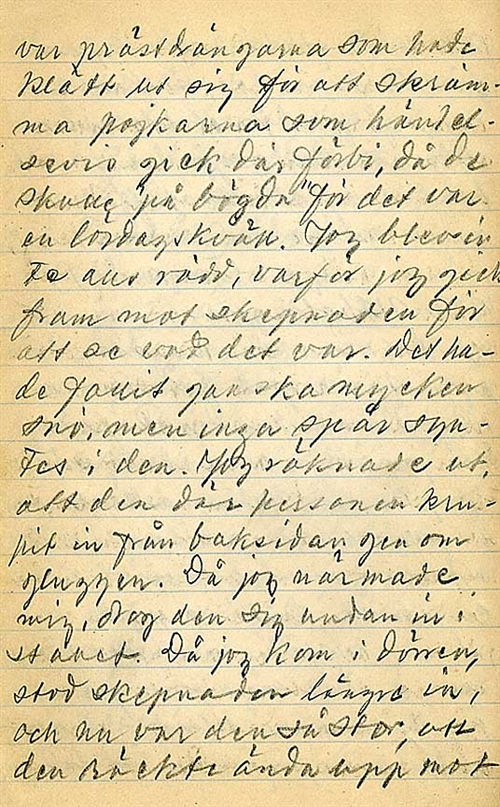 var prästdrängarna som hade
klätt ut sig för att skräm-
ma pojkarna som händel-
sevis gick där förbi, då de
skulle "på bögda" för det var
en lördagskväll. Jag blev in-
te alls rädd, varför jag gick
fram mot skepnaden för
att se vad det var. Det ha-
de fallit ganska mycken
snö, men inga spår syn-
tes i den. Jag räknade ut,
att den där personen kru-
pit in från baksidan genom
gluggen. Då jag närmade
mig, drog den sig undan in i
stallet. Då jag kom i dörren,
stod skepnaden längre in,
och nu var den så stor, att
den räckte ända upp mot